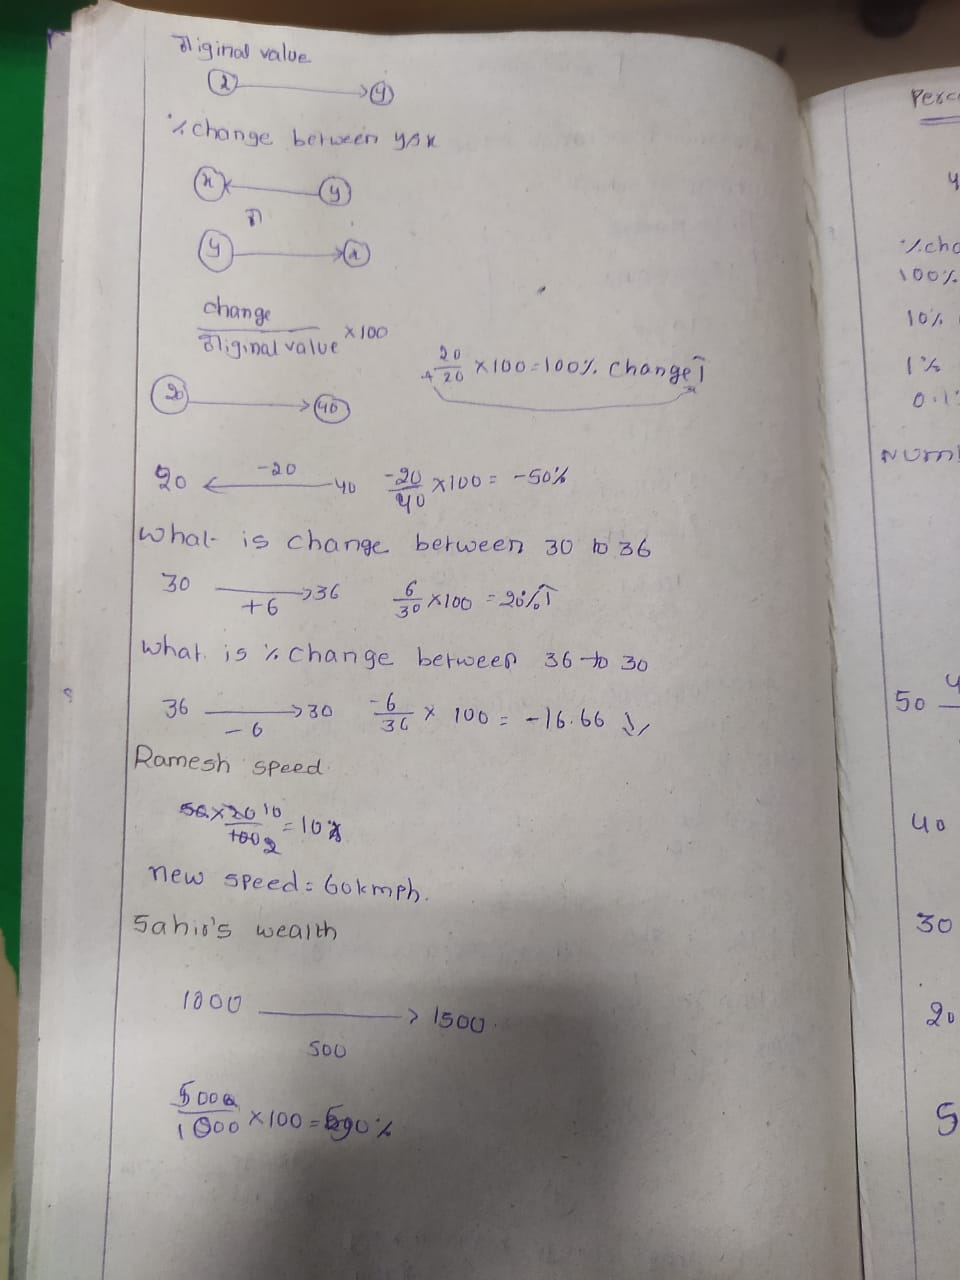 Original value
x → y
% change between y & x
x ← y
or
y → x
change / Original value × 100
20 → 40
+ 20/20 × 100 = 100% change ↑
20 ← -20 40 -20/40 × 100 = -50%
What is change between 30 to 36
30 → +6 36 6/30 × 100 = 20% ↑
What is % change between 36 to 30
36 → -6 30 -6/36 × 100 = -16.66 ↓
Ramesh speed
50 × 20 10 / 100 2 = 10
new speed = 60kmph.
wealth
1000 → 1500
500
× 100 =
Perc
%cha
100%
10%
1%
0.1
Num
50
40
30
20
5